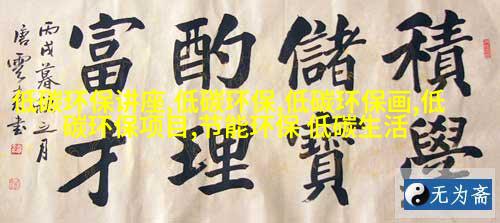 積學
儲寶
酌理
富才
丙戌暮秋之月
唐雲來書
低碳环保讲座,低碳环保,低碳环保画,低
碳环保项目,节能环保 低碳生活
无为斋